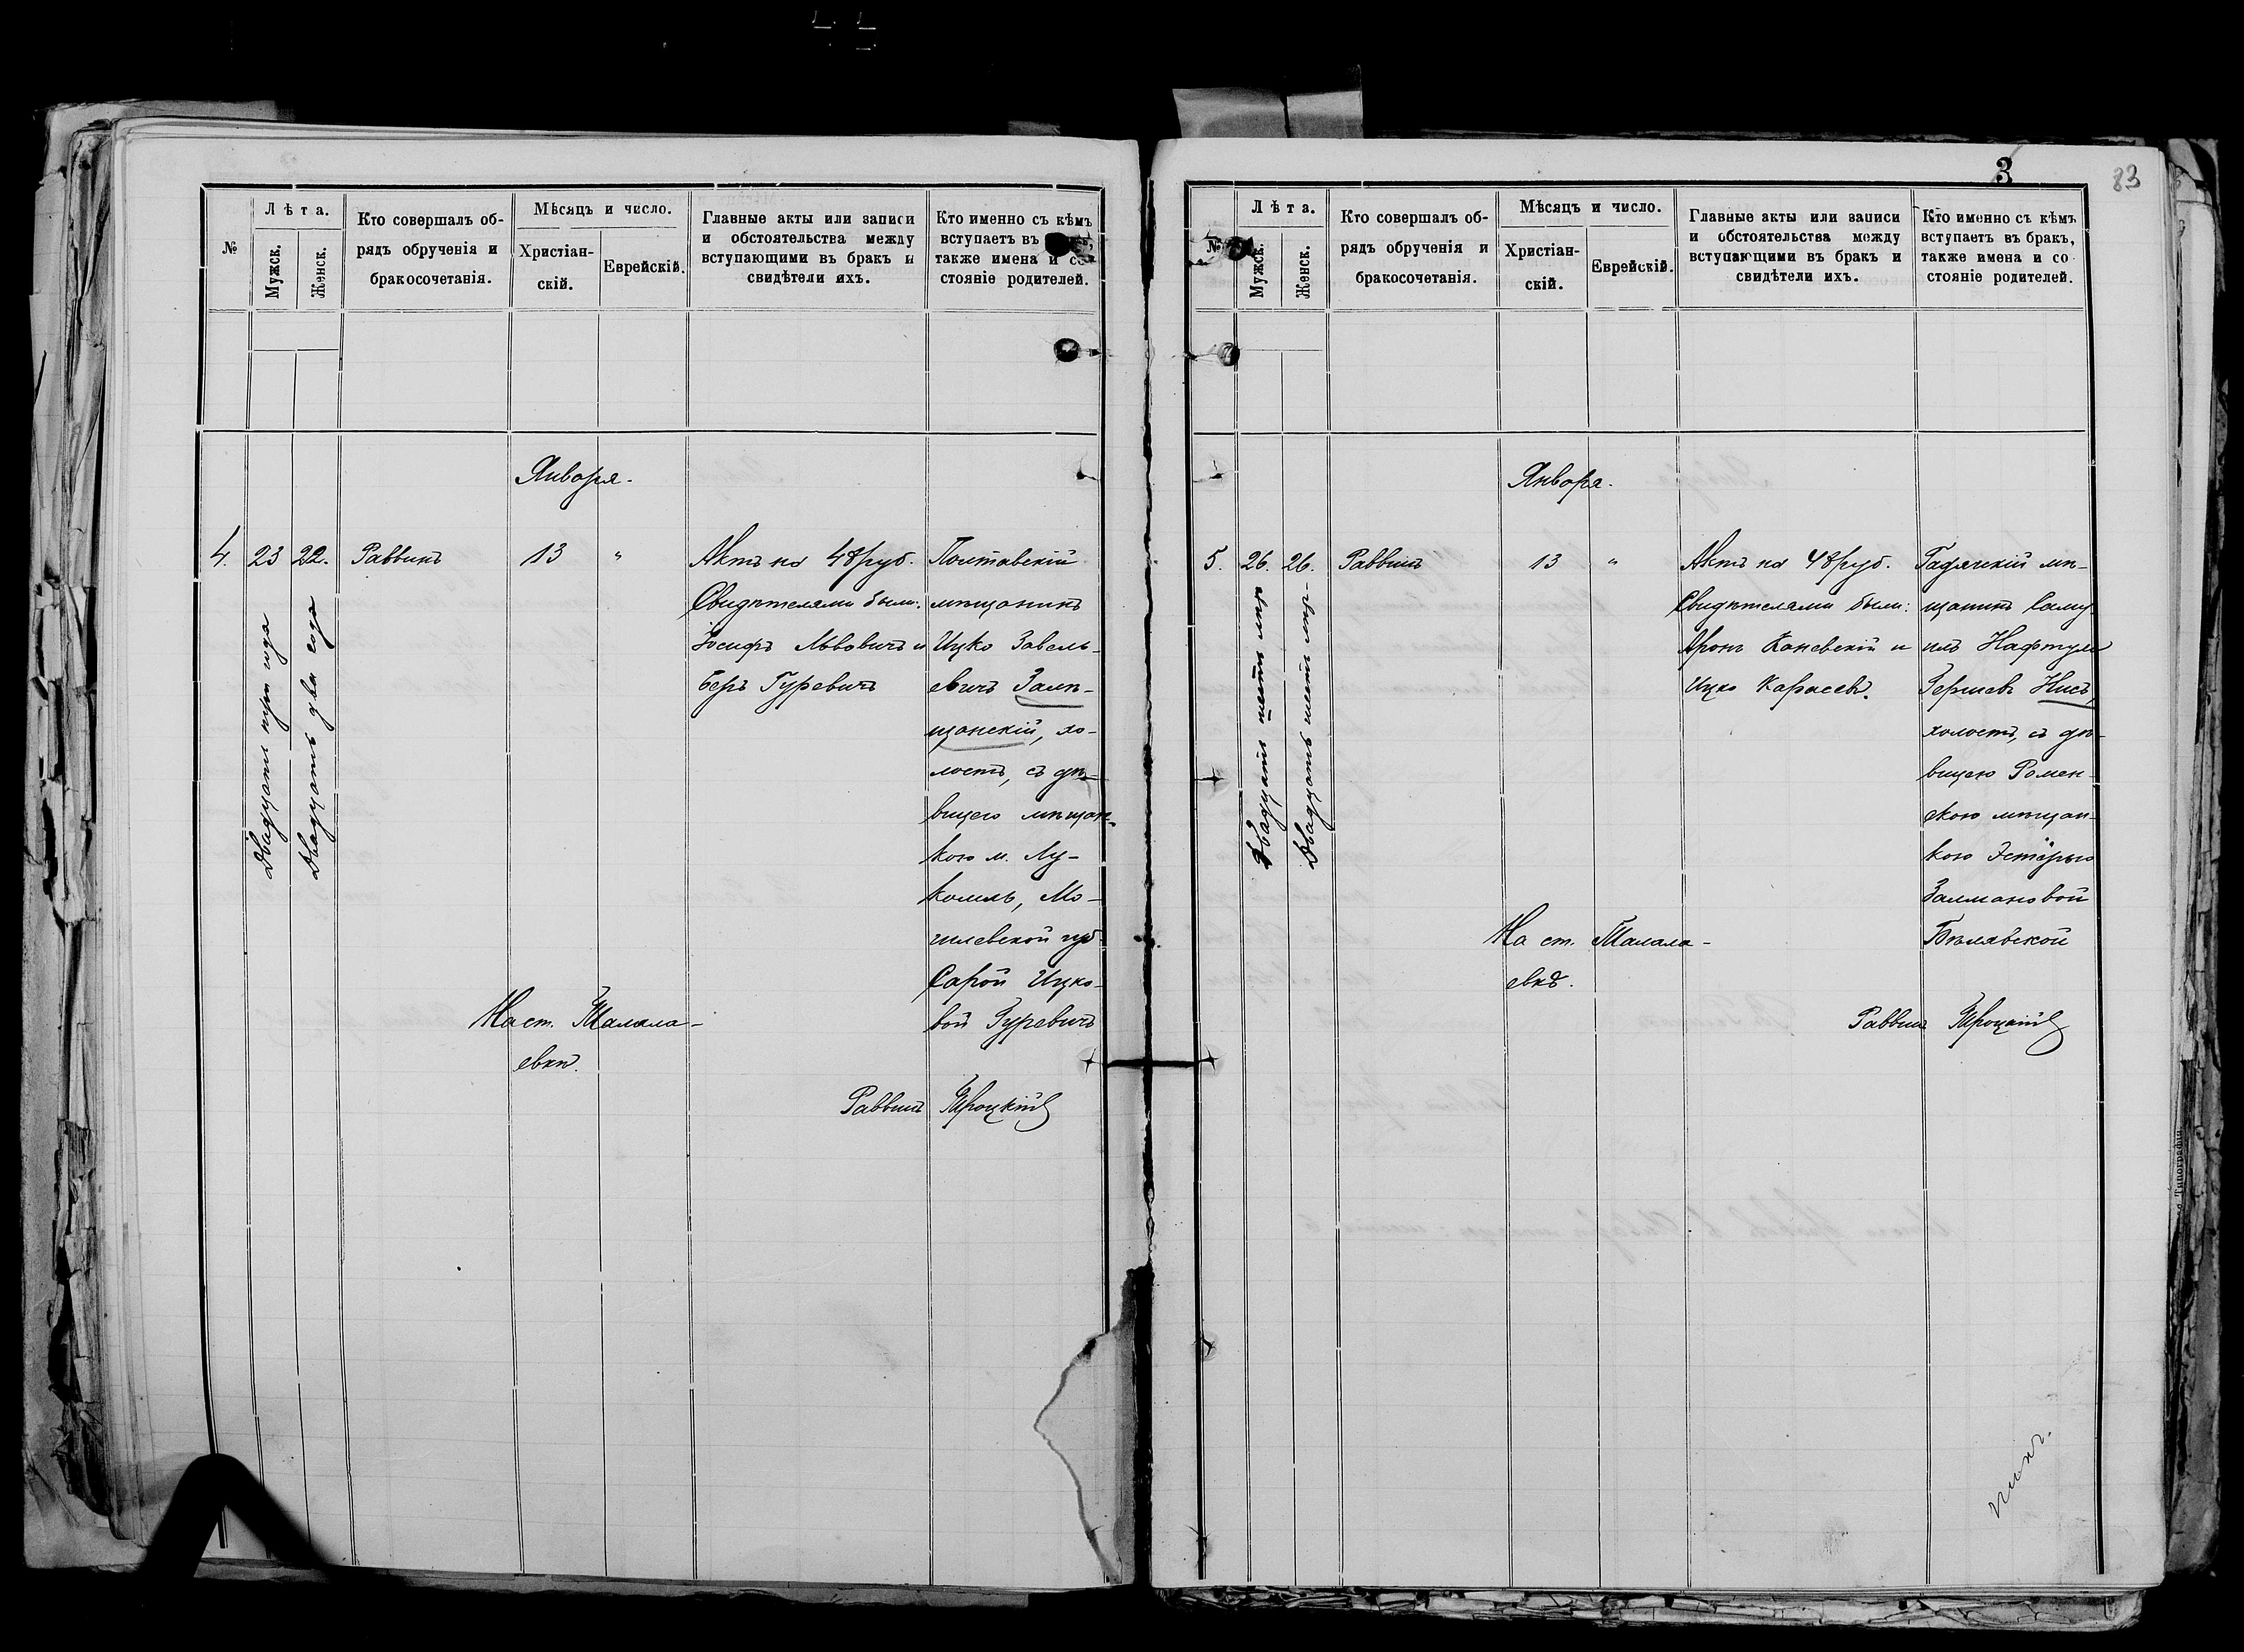 №
Лѣта.
Мужск.
Женск.
Кто совершалъ об-
рядъ обрученія и
бракосочетанія.
Мѣсяцъ и число.
Христіан-
скій.
Еврейскій.
Главные акты или записи
и обстоятельства между
вступающими въ бракъ и
свидѣтели ихъ.
Кто именно съ кѣмъ
вступаетъ въ
также имена и со
стояніе родителей.
Января.
4.
23
22.
Двадцать три года
Двадцать два года
Раввинъ
13
"
Актъ на 48 руб.
Свидѣтелями были:
Іосифъ Львовичъ и
Беръ Гуревичъ
Полтавскій
мѣщанинъ
Ицко Завель-
евичъ Залѣ-
щанскій, хо-
лостъ, съ дѣ-
вицею мѣщан-
кою м. Лу-
комль, Мо-
гилевской губ
Сарой Ицко-
вой Гуревичъ
На ст. Талала-
евкѣ.
Раввинъ Троцкій
3
83
№
Лѣта.
Мужск.
Женск.
Кто совершалъ об-
рядъ обрученія и
бракосочетанія.
Мѣсяцъ и число.
Христіан-
скій.
Еврейскій.
Главные акты или записи
и обстоятельства между
вступающими въ бракъ и
свидѣтели ихъ.
Кто именно съ кѣмъ
вступаетъ въ бракъ,
также имена и со
стояніе родителей.
Января.
5.
26.
26.
Двадцать шесть лѣтъ
Двадцать шесть лѣтъ
Раввинъ
13
"
Актъ на 48 руб.
Свидѣтелями были:
Аронъ Каневскій и
Ицко Карасевъ.
Гадячскій мѣ-
щанинъ Саму-
илъ Нафтули
Гершевъ Нисъ,
холостъ, съ дѣ-
вицею Ромен-
скою мѣщан-
кою Эстёрью
Залмановой
Бѣлявской
На ст. Талала-
евкѣ.
Раввинъ Троцкій
Типографія